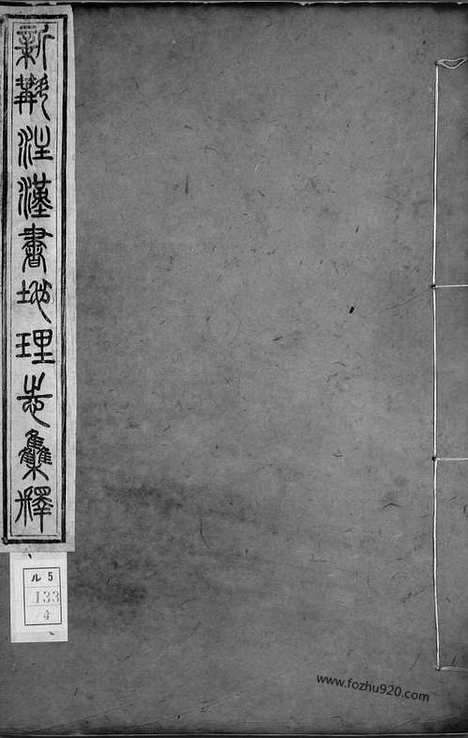 新斠注漢書地理志集釋
ル5
133
4
www.fozhu920.com